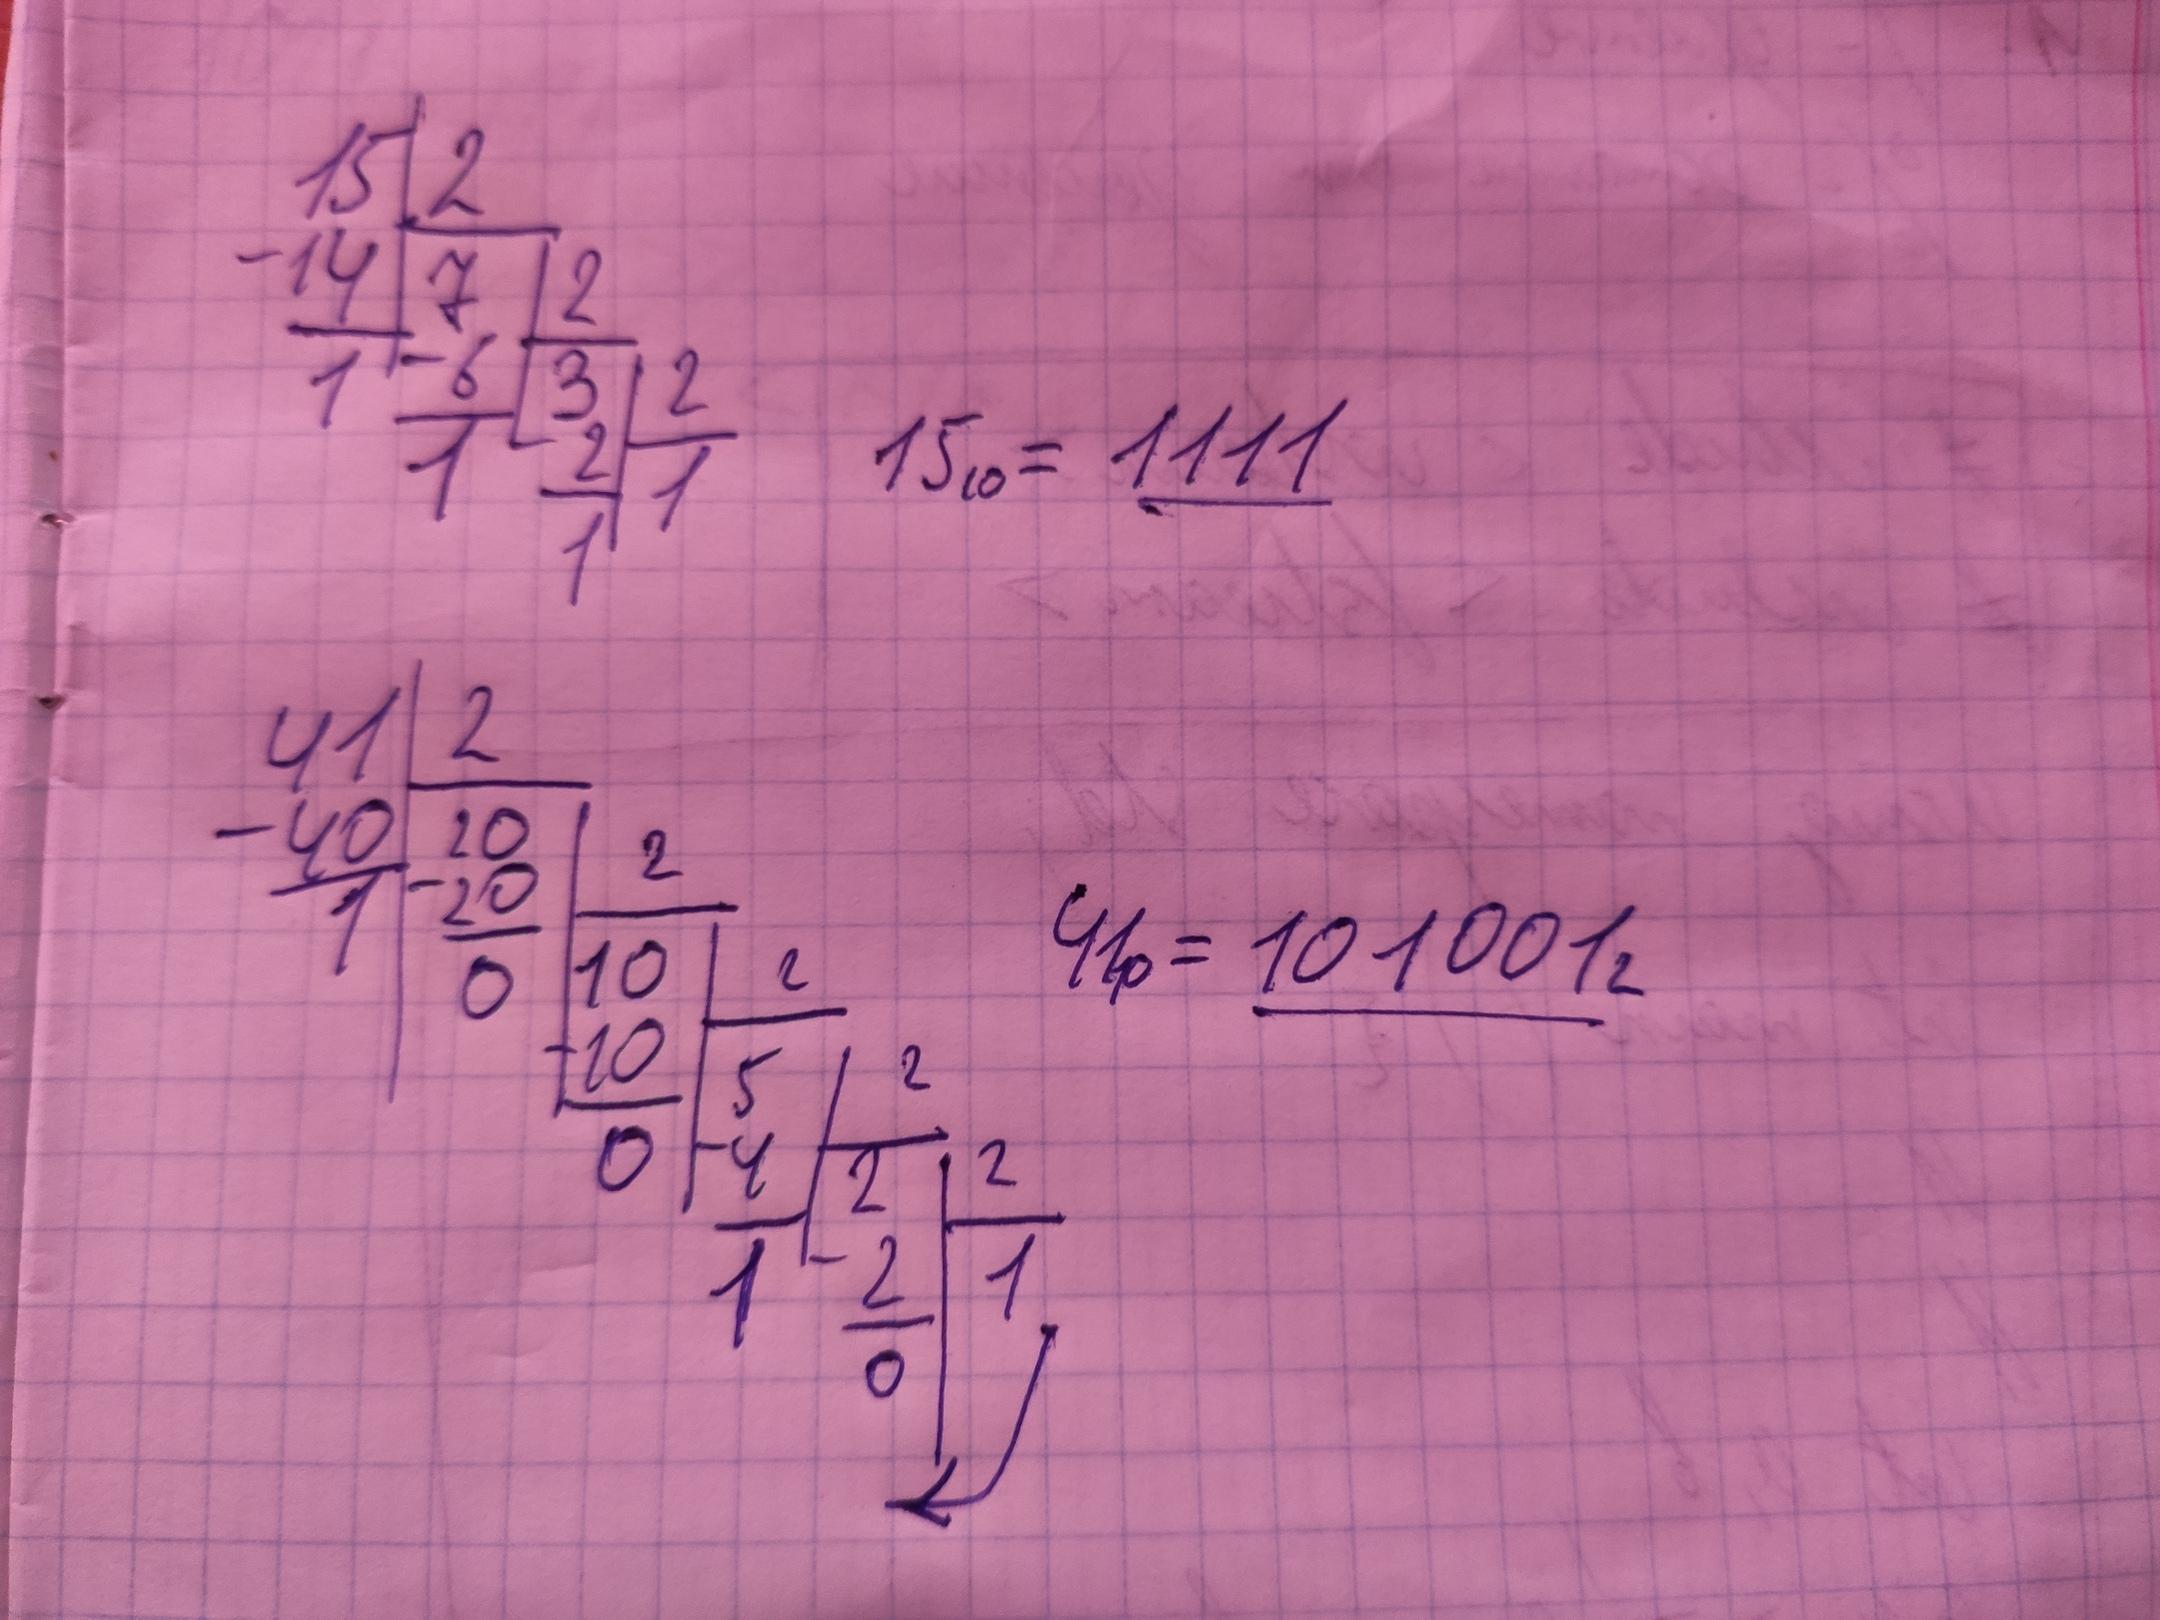 15 2
-14 7 2
1 -6 3 2
1 -2 1
1
15₁₀ = 1111
41 2
-40 20 2
1 -20 10 2
0 -10 5 2
0 -4 2 2
1 -2 1
0
41₁₀ = 101001₂